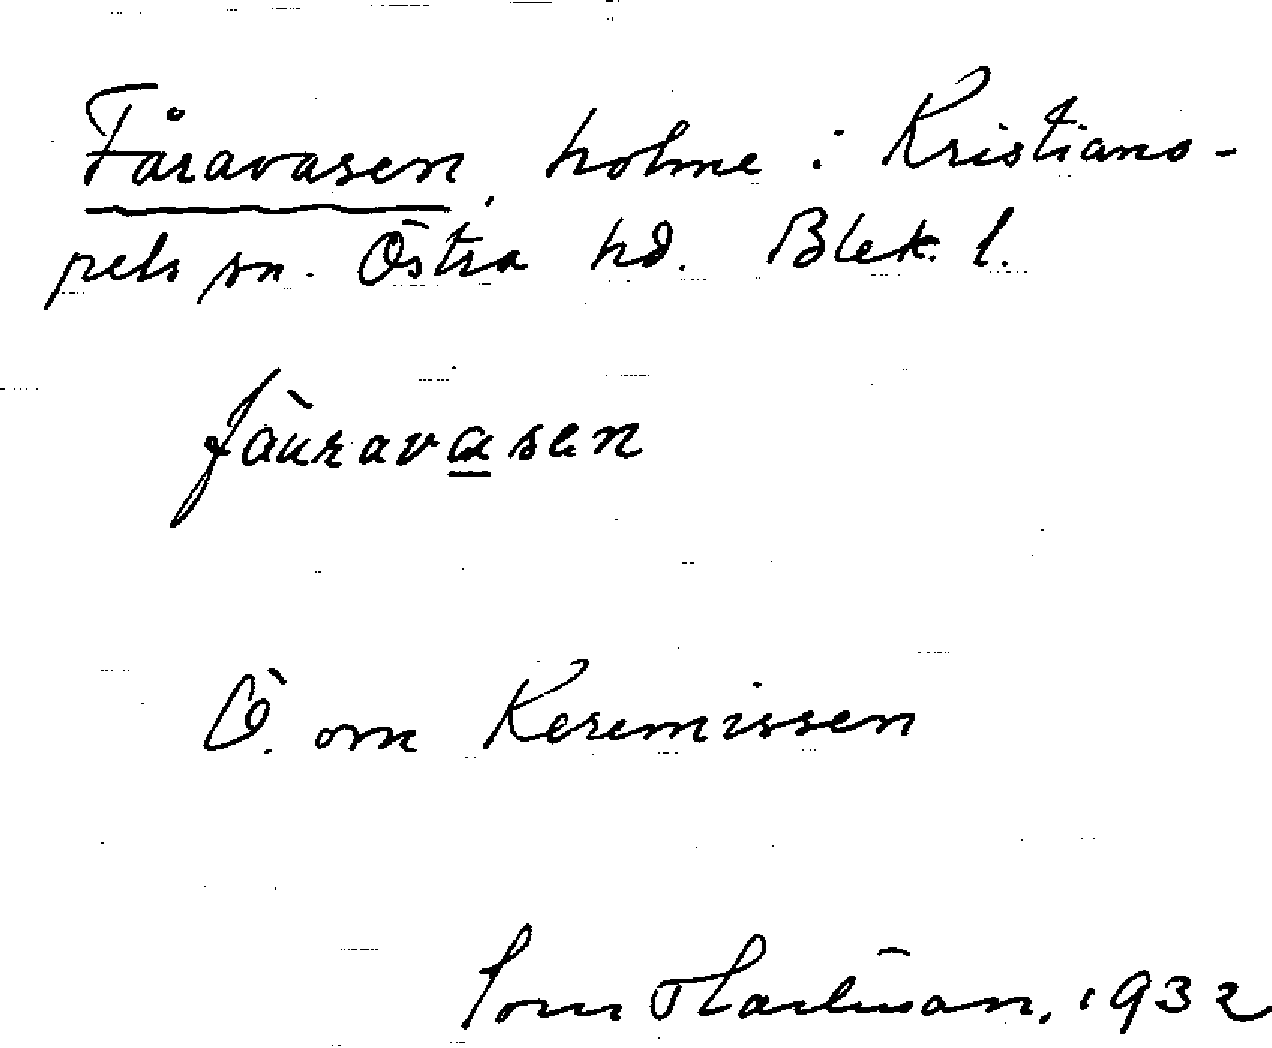 Fåravasen, holme i Kristiano-
pels sn. Östra hd. Blek. l.
fàuravasen
Ö. om Keremissen
1932